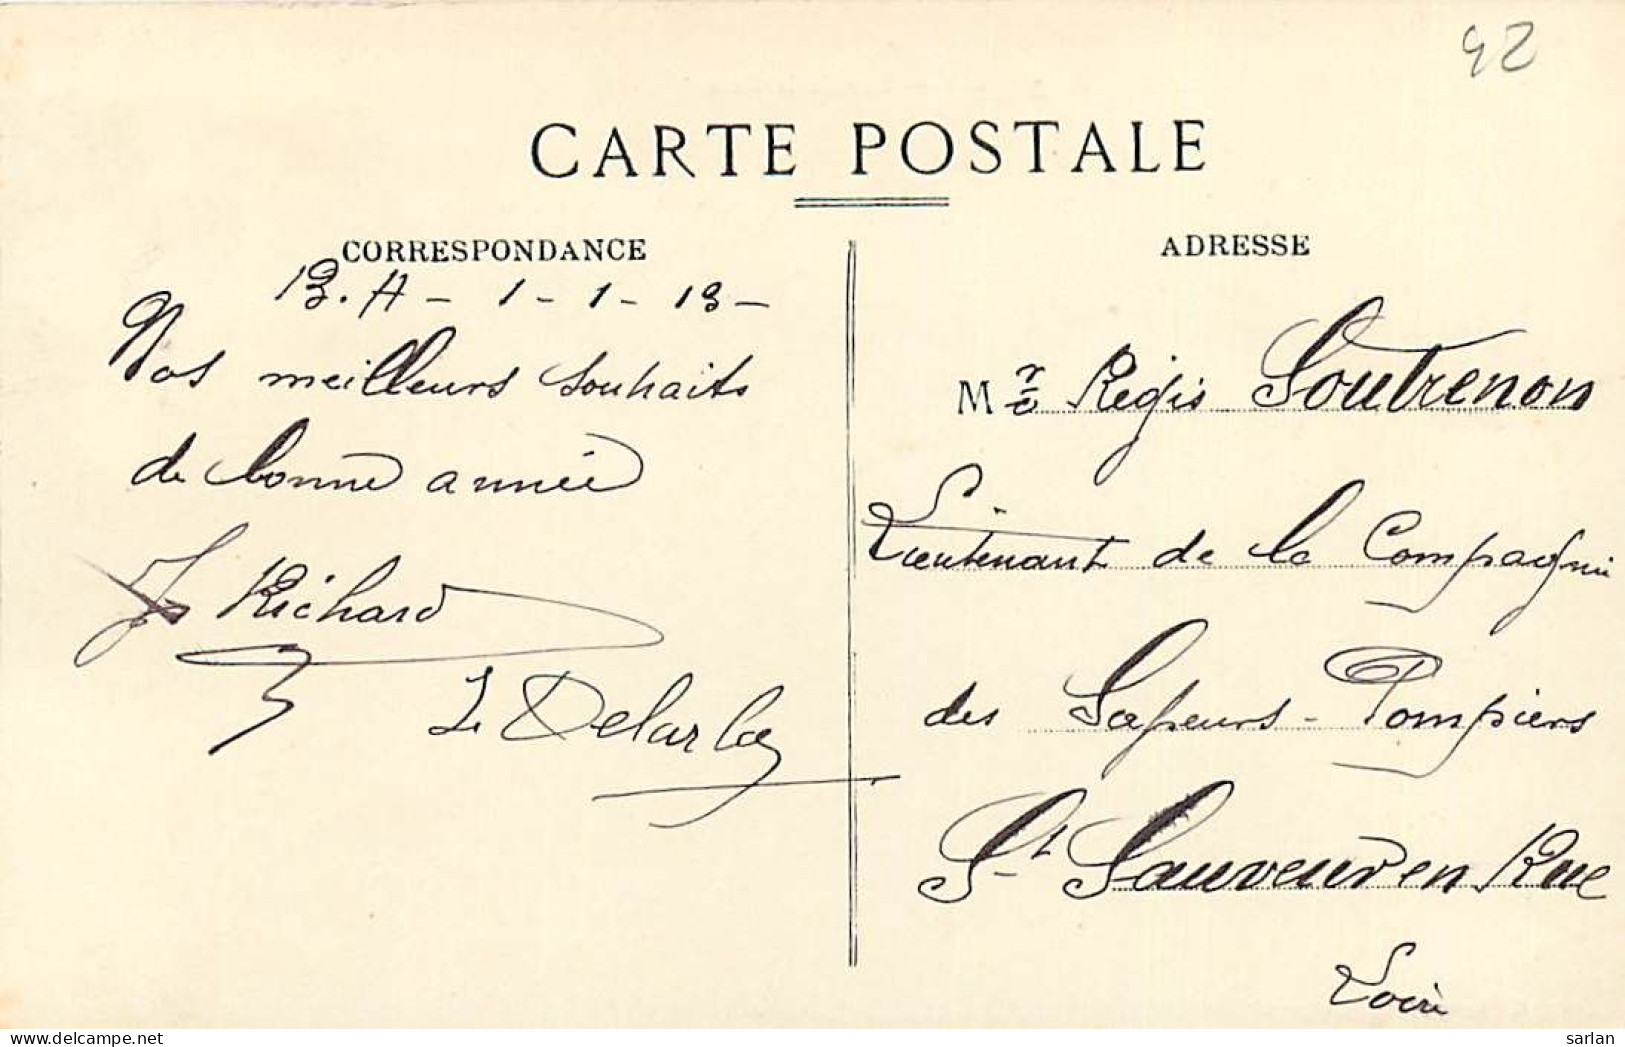 42
CARTE POSTALE
CORRESPONDANCE
B.A - 1 - 1 - 13 -
Nos meilleurs souhaits
de bonne année
Richard
Delarbe
ADRESSE
Mr Régis Soutrenon
Lieutenant de la Compagnie
des Sapeurs - Pompiers
St Sauveur en Rue
Loire
sarlan